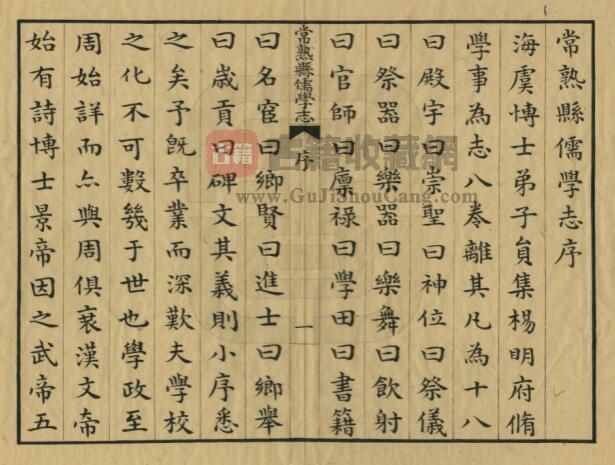 常熟縣儒學志序
海虞博士弟子員集楊明府脩
學事為志八卷離其凡為十八
曰殿宇曰崇聖曰神位曰祭儀
曰祭器曰樂器曰樂舞曰飲射
曰官師曰廩祿曰學田曰書籍
常熟縣儒學志 序 一
曰名宦曰鄉賢曰進士曰鄉舉
曰歲貢曰碑文其義則小序悉
之矣予既卒業而深歎夫學校
之化不可數幾于世也學政至
周始詳而亦與周俱衰漢文帝
始有詩博士景帝因之武帝五
古籍 古籍收藏網
www.GuJiShouCang.com